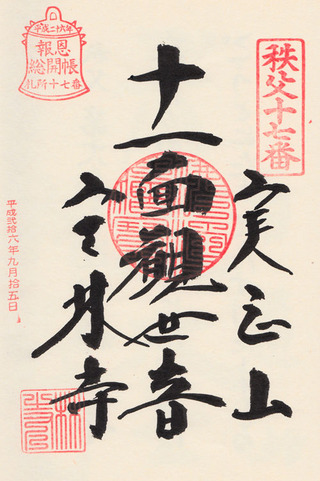 秩父十七番
実正山
十一面觀世音
定林寺
平成二十六年
報恩
総開帳
札所十七番
平成弐拾六年九月拾五日